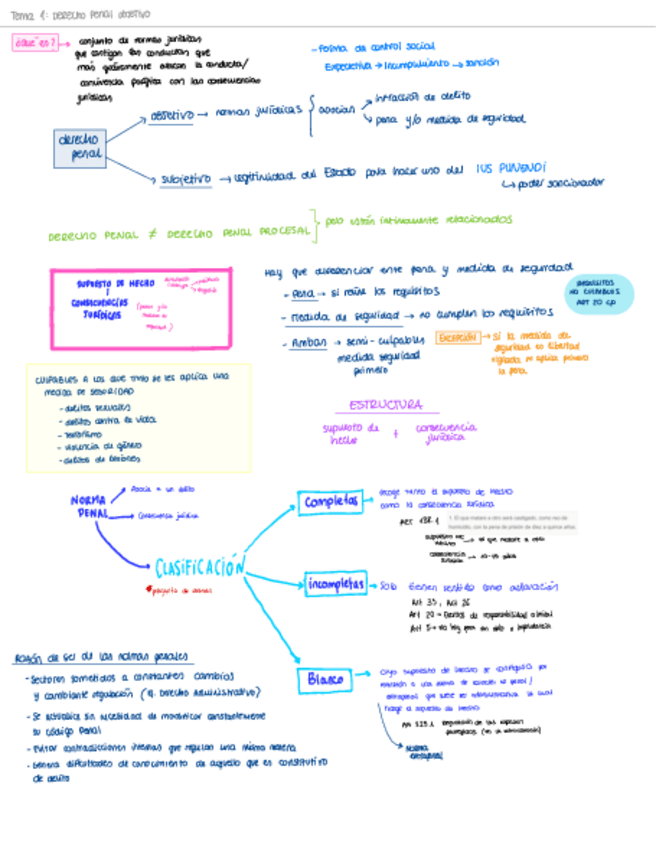 Tema 1: Derecho Penal objetivo
¿Qué es? → conjunto de normas jurídicas
que castigan las conductas que
más gravemente atacan la conducta/
convivencia pacífica con las consecuencias
jurídicas
- Forma de control social
Expectativa → Incumplimiento → sanción
derecho penal
objetivo → normas jurídicas { asocian
infracción de delito
pena y/o medida de seguridad
subjetivo → legitimidad del Estado para hacer uso del IUS PUNENDI
↳ poder sancionador
DERECHO PENAL ≠ DERECHO PENAL PROCESAL } pero están íntimamente relacionados
SUPUESTO DE HECHO
CONSECUENCIAS
JURÍDICAS
Hay que diferenciar entre pena y medida de seguridad
- Pena → si reúne los requisitos
- Medida de seguridad → no cumplen los requisitos
- Ambas → semi-culpables
medida seguridad
primero
Excepción → si la medida de
seguridad es libertad
vigilada se aplica primero
la pena
REQUISITOS
NO CULPABLES
ART 20 CP
CULPABLES A LOS QUE SE LES APLICA UNA
MEDIDA DE SEGURIDAD
- delitos sexuales
- delitos contra la vida
- terrorismo
- violencia de género
- delitos de lesiones
ESTRUCTURA
supuesto de hecho + consecuencia jurídica
NORMA PENAL
Asocia a un delito
Consecuencia jurídica
CLASIFICACIÓN
pregunta de examen
Completas → recoge tanto el supuesto de hecho
como la consecuencia jurídica
Art 138.1
1. El que matare a otro será castigado, como reo de
homicidio, con la pena de prisión de diez a quince años.
supuesto de hecho → el que matare a otro
consecuencia jurídica → 10-15 años
incompletas → Solo tienen sentido como aclaración
Art 20 →
Art 5 → no hay pena sin dolo o imprudencia
Blanco → Cuyo supuesto de hecho se configura por
remisión a una norma de carácter no penal/
extrapenal que suele ser administrativa la cual
NORMA
EXTRAPENAL
Razón de ser de las normas penales
- Sectores sometidos a constantes cambios
y cambiante regulación (ej. Derecho Administrativo)
- Se actualiza sin necesidad de modificar constantemente
su código penal
- Evitar contradicciones internas que regulan una misma materia
- Genera dificultades de conocimiento de aquello que es constitutivo
de delito